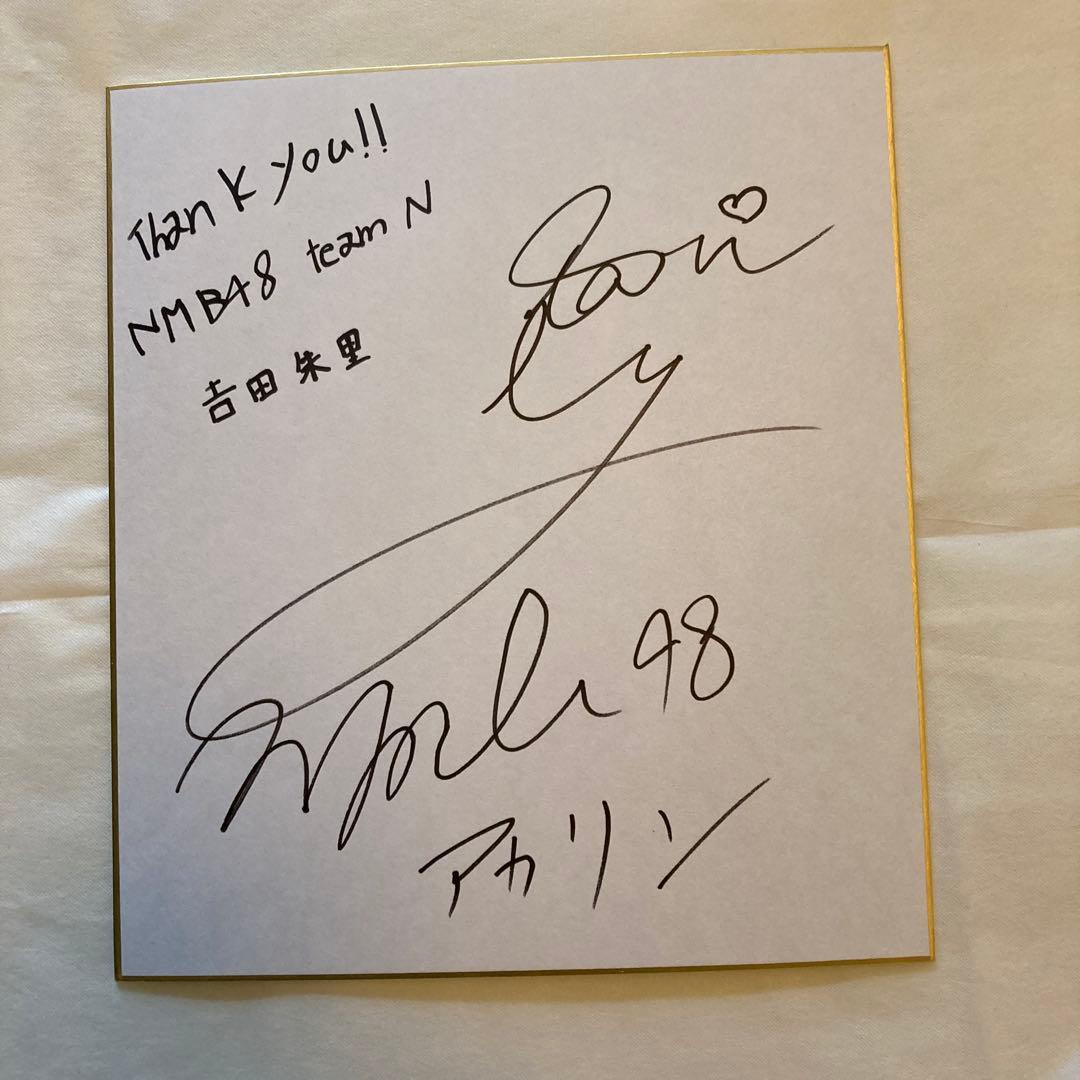 Thank you!!
NMB48 team N
吉田朱里
48
アカリン